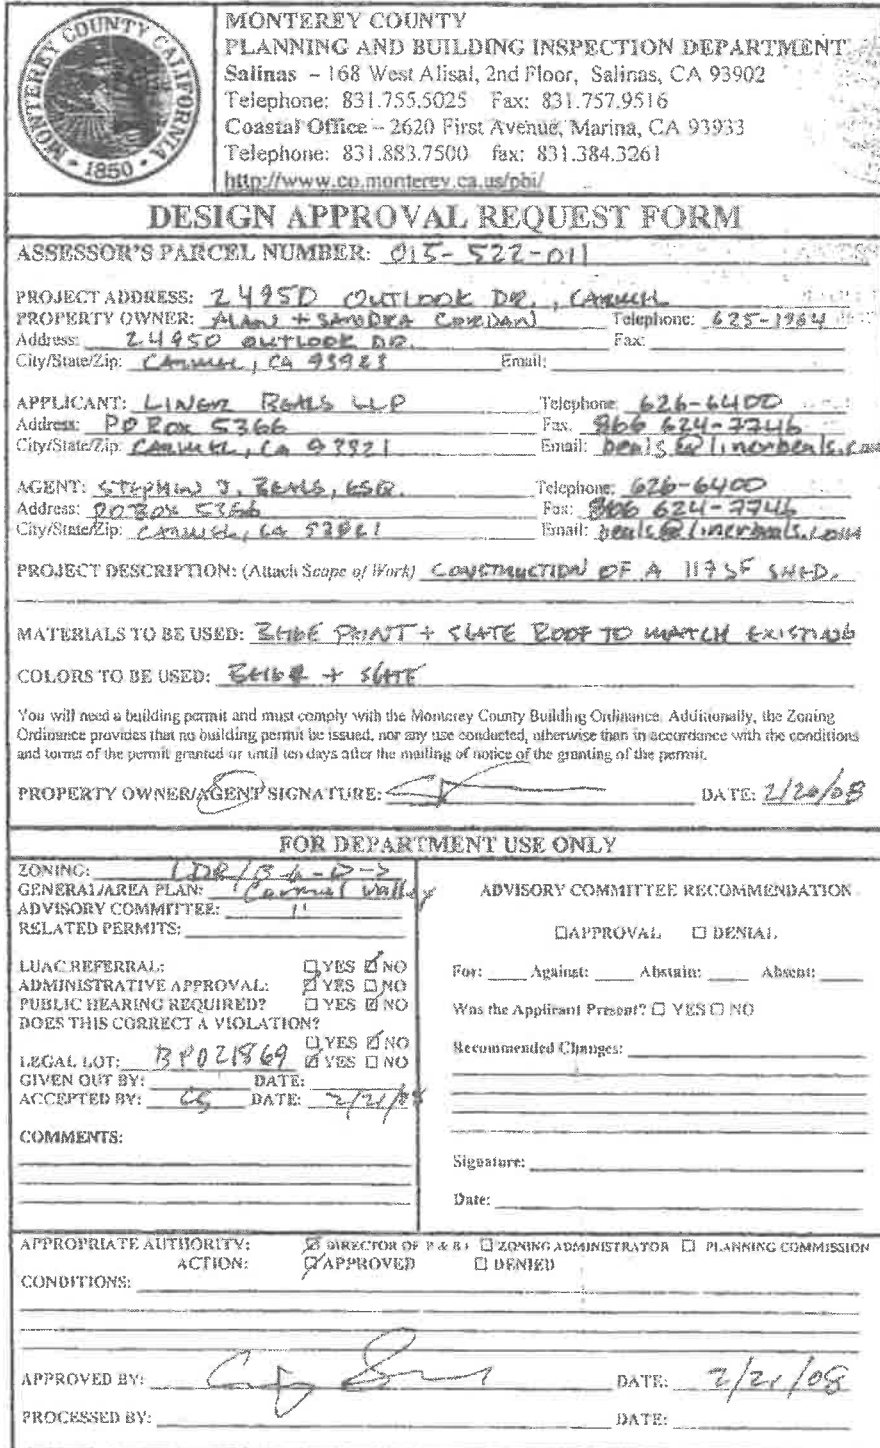 MONTEREY COUNTY CALIFORNIA
1850
MONTEREY COUNTY
PLANNING AND BUILDING INSPECTION DEPARTMENT
Salinas – 168 West Alisal, 2nd Floor, Salinas, CA 93902
Telephone: 831.755.5025 Fax: 831.757.9516
Coastal Office – 2620 First Avenue, Marina, CA 93933
Telephone: 831.883.7500 fax: 831.384.3261
http://www.co.monterey.ca.us/pbi/
DESIGN APPROVAL REQUEST FORM
ASSESSOR'S PARCEL NUMBER: 015-522-011
PROJECT ADDRESS: 24950 OUTLOOK DR., CARMEL
PROPERTY OWNER: ALAN + SANDRA CORDAN Telephone: 625-1964
Address: 24950 OUTLOOK DR. Fax:
City/State/Zip: CARMEL, CA 93923 Email:
APPLICANT: LINER BEALS LLP Telephone: 626-6400
Address: PO BOX 5366 Fax: 866 624-7746
City/State/Zip: CARMEL, CA 93921 Email: beals@linerbeals.com
AGENT: STEPHEN J. BEALS, ESQ. Telephone: 626-6400
Address: PO BOX 5366 Fax: 866 624-7746
City/State/Zip: CARMEL, CA Email: beals@linerbeals.com
PROJECT DESCRIPTION: (Attach Scope of Work) CONSTRUCTION OF A 117 SF SHED.
MATERIALS TO BE USED: PAINT + SLATE ROOF TO MATCH EXISTING
COLORS TO BE USED: + SLATE
You will need a building permit and must comply with the Monterey County Building Ordinance. Additionally, the Zoning
Ordinance provides that no building permit be issued, nor any use conducted, otherwise than in accordance with the conditions
and terms of the permit granted or until ten days after the mailing of notice of the granting of the permit.
PROPERTY OWNER/AGENT SIGNATURE: DATE: 2/20/08
FOR DEPARTMENT USE ONLY
ZONING: LDR/B-6-D-S
GENERAL/AREA PLAN: Carmel Valley
ADVISORY COMMITTEE: "
RELATED PERMITS:
LUAC REFERRAL: ☐ YES ☑ NO
ADMINISTRATIVE APPROVAL: ☑ YES ☐ NO
PUBLIC HEARING REQUIRED? ☐ YES ☑ NO
DOES THIS CORRECT A VIOLATION?
☐ YES ☑ NO
LEGAL LOT: BP021869 ☑ YES ☐ NO
GIVEN OUT BY: DATE:
ACCEPTED BY: CS DATE: 2/21/08
COMMENTS:
ADVISORY COMMITTEE RECOMMENDATION
☐ APPROVAL ☐ DENIAL
For: Against: Abstain: Absent:
Was the Applicant Present? ☐ YES ☐ NO
Recommended Changes:
Signature:
Date:
APPROPRIATE AUTHORITY: ☑ DIRECTOR OF P & BI ☐ ZONING ADMINISTRATOR ☐ PLANNING COMMISSION
ACTION: ☑ APPROVED ☐ DENIED
CONDITIONS:
APPROVED BY: DATE: 2/21/08
PROCESSED BY: DATE: